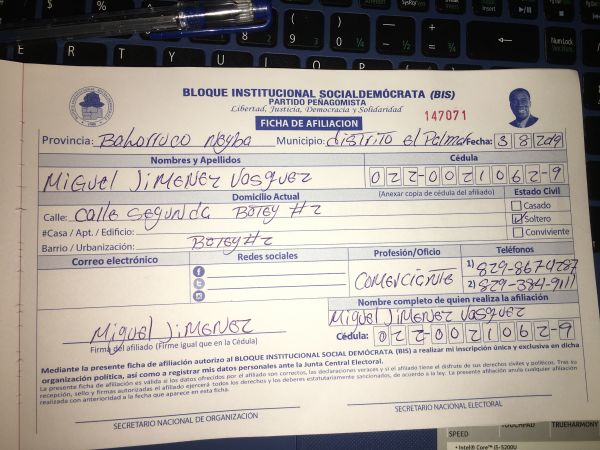 BLOQUE INSTITUCIONAL SOCIALDEMÓCRATA (BIS)
PARTIDO PEÑAGOMISTA
Libertad, Justicia, Democracia y Solidaridad
FICHA DE AFILIACION
147071
Provincia: Bahorruco Neyba Municipio: distrito el Palmar Fecha: 3 8 2019
Nombres y Apellidos Cédula
Miguel Jimenez Vasquez 022-0021062-9
Domicilio Actual (Anexar copia de cédula del afiliado) Estado Civil
Calle: Calle Segunda Botey #2 Casado
#Casa / Apt. / Edificio: Soltero
Barrio / Urbanización: Botey #2 Conviviente
Correo electrónico Redes sociales Profesión/Oficio Teléfonos
1) 829-867-4287
Comerciante 2) 829-384-9111
Nombre completo de quien realiza la afiliación
Miguel Jimenez Vasquez
Miguel Jimenez Cédula: 022-0021062-9
Firma del afiliado (Firme igual que en la Cédula)
Mediante la presente ficha de afiliación autorizo al BLOQUE INSTITUCIONAL SOCIAL DEMÓCRATA (BIS) a realizar mi inscripción única y exclusiva en dicha
organización política, así como a registrar mis datos personales ante la Junta Central Electoral.
La presente ficha de afiliación es válida si los datos ofrecidos por el afiliado son correctos, las declaraciones veraces y si el afiliado tiene el disfrute de sus derechos civiles y políticos. Tras su
recepción, sello y firmas autorizadas el afiliado ejercerá todos los derechos y los deberes estatutariamente sancionados, de acuerdo a la ley. La presente afiliación anula cualquier afiliación
realizada con anterioridad a la fecha que aparece en esta ficha.
SECRETARIO NACIONAL DE ORGANIZACIÓN SECRETARIO NACIONAL ELECTORAL
SPEED TOUCHPAD TRUEHARMONY
• Intel® Core™ i5-5200U